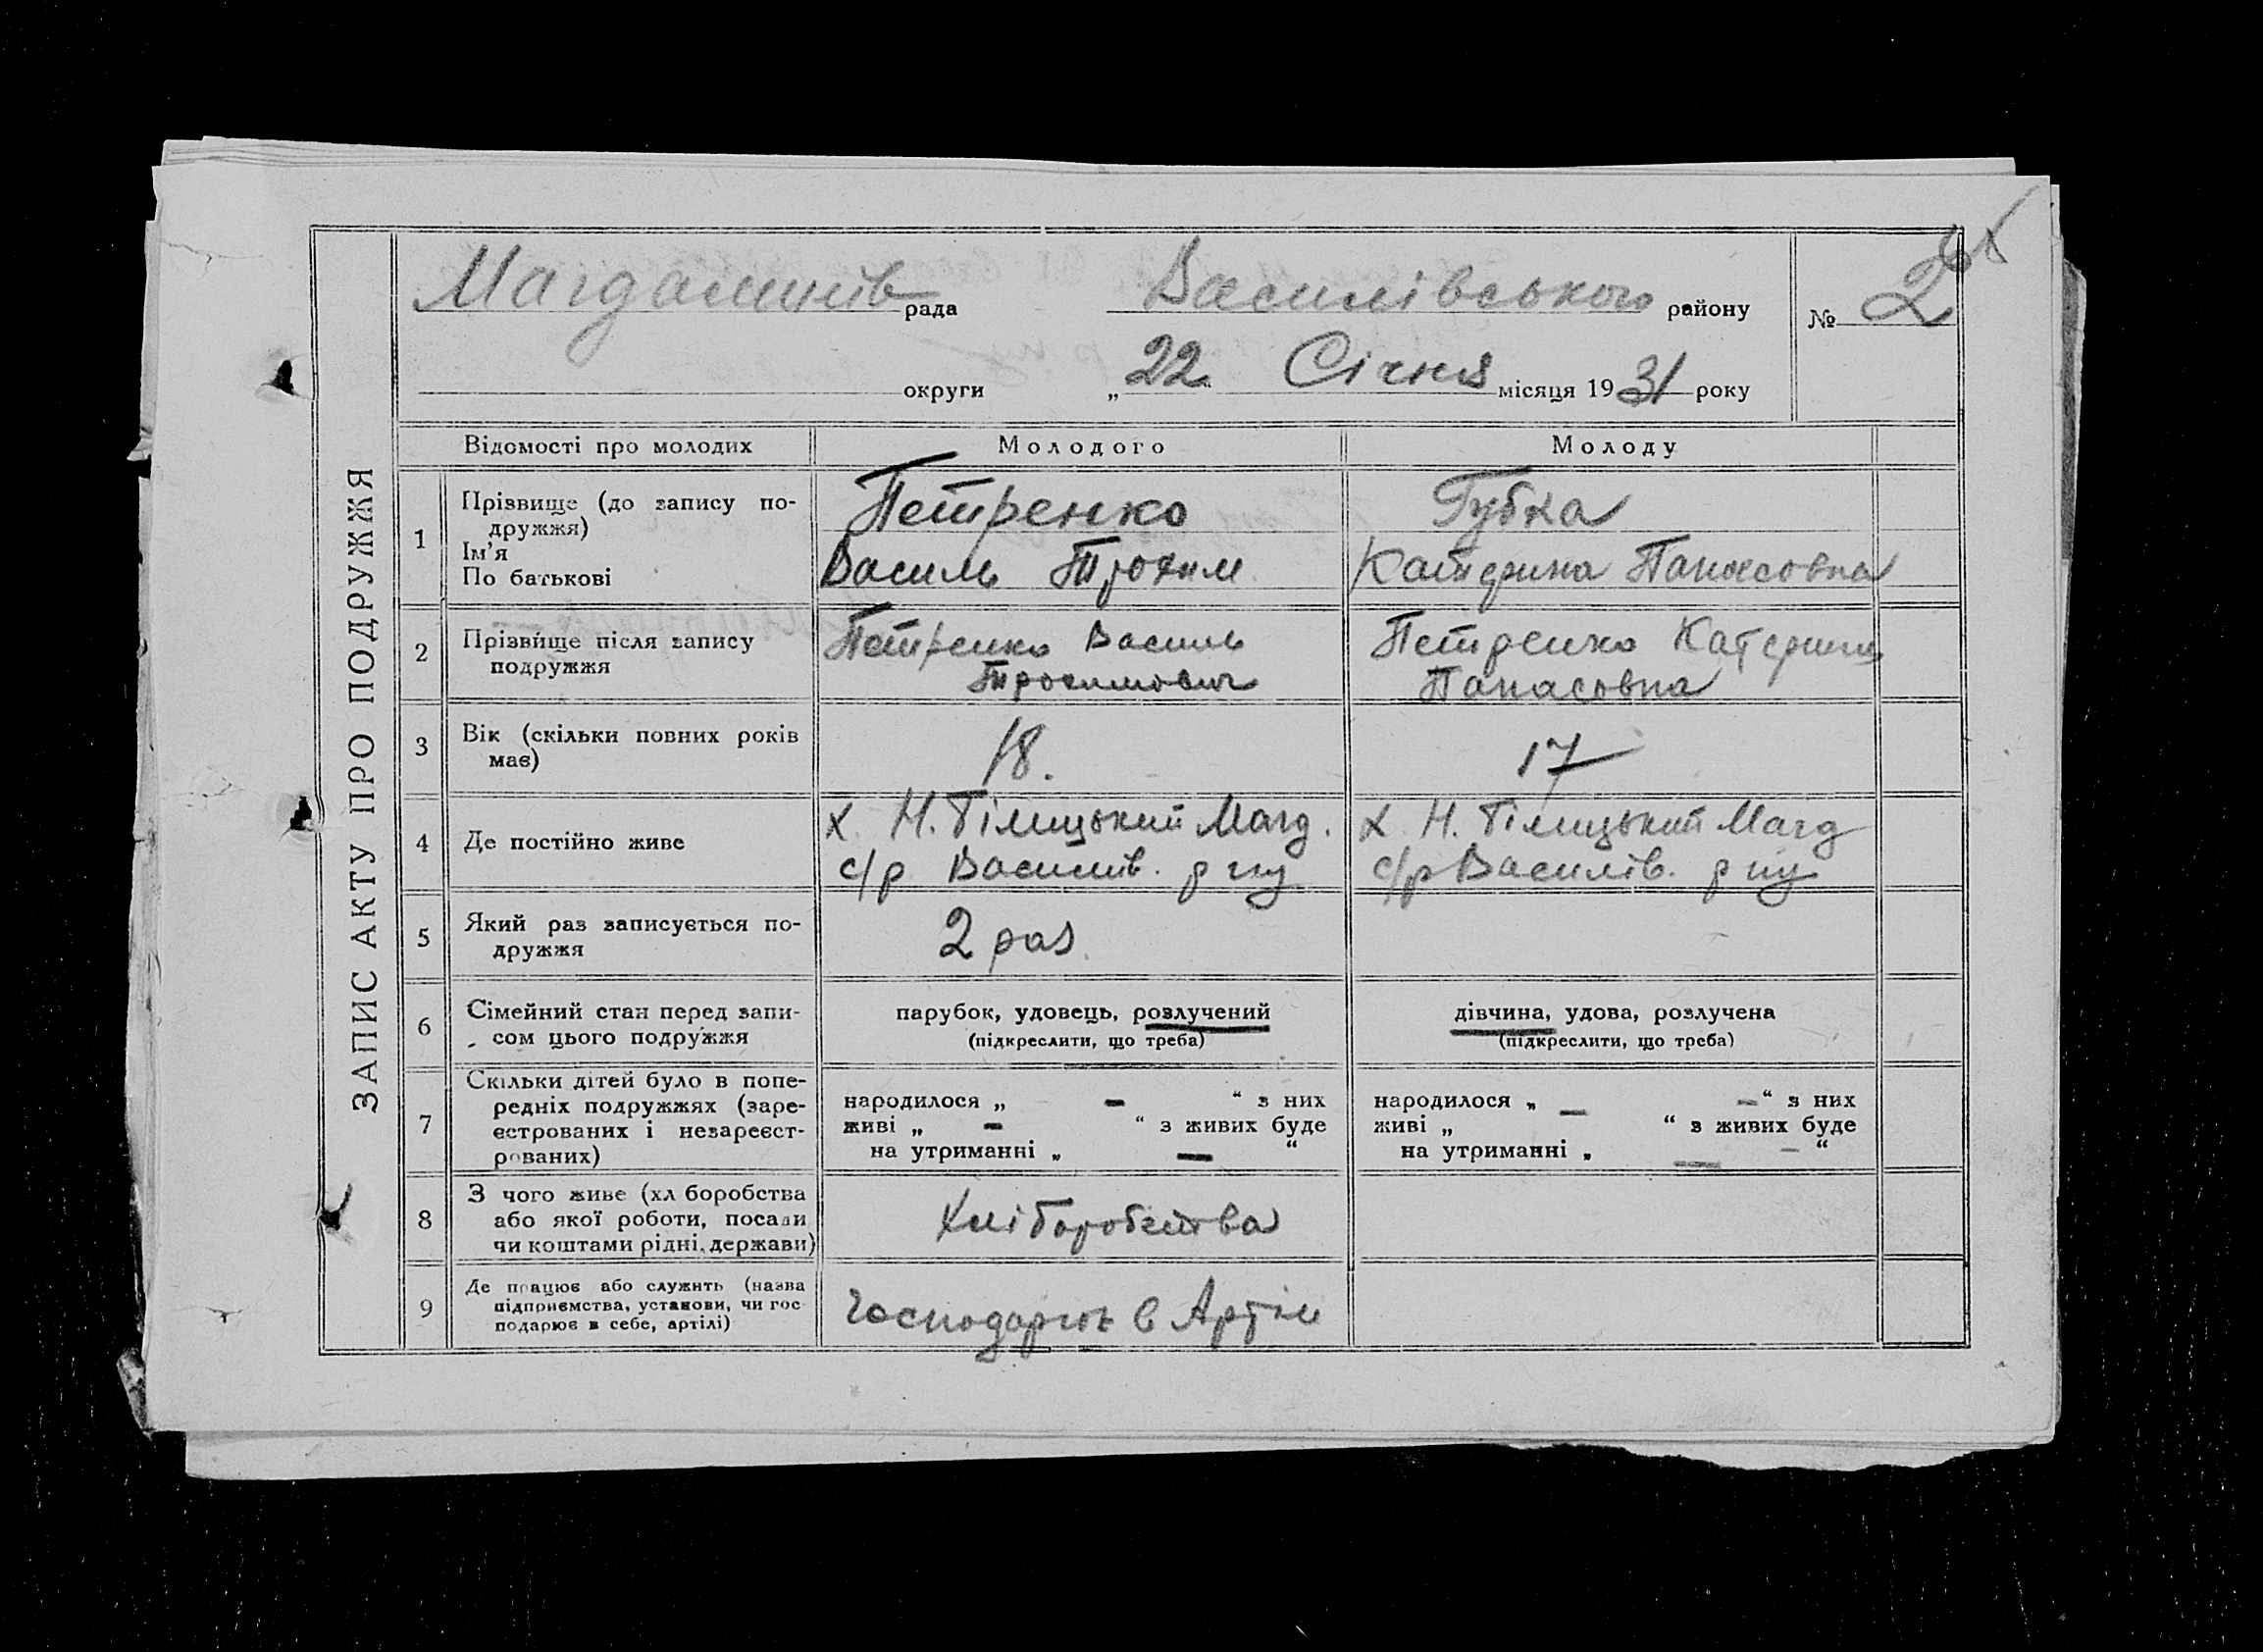 ЗАПИС АКТУ ПРО ПОДРУЖЖЯ
Магдалинів рада Василівського району № 2
округи „22 Січня місяця 1931 року
Відомості про молодих Молодого Молоду
1 Прізвище (до запису по-
дружжя)
Ім'я
По батькові
Петренко
Василь Трохим
Губка
Катерина Панасовна
2 Прізвище після запису
подружжя
Петренко Василь
Трохимович
Петренко Катерина
Панасовна
3 Вік (скільки повних років
має)
18.
17
4 Де постійно живе
х. Н. Білицький Магд.
с/р Василів. р ну
х Н. Білицький Магд
с/р Василів. р ну
5 Який раз записується по-
дружжя
2 раз
6 Сімейний стан перед запи-
сом цього подружжя
парубок, удовець, розлучений
(підкреслити, що треба)
дівчина, удова, розлучена
(підкреслити, що треба)
7 Скільки дітей було в попе-
редніх подружжях (заре-
єстрованих і незареєст-
рованих)
народилося „ — “ з них
живі „ — “ з живих буде
на утриманні „ — “
народилося „ — — “ з них
живі „ “ з живих буде
на утриманні „ — — “
8 З чого живе (хл боробства
або якої роботи, посади
чи коштами рідні, держави)
Хліборобства
9 Де працює або служить (назва
підприємства, установи, чи гос-
подарює в себе, артілі)
Господарює в Артіл